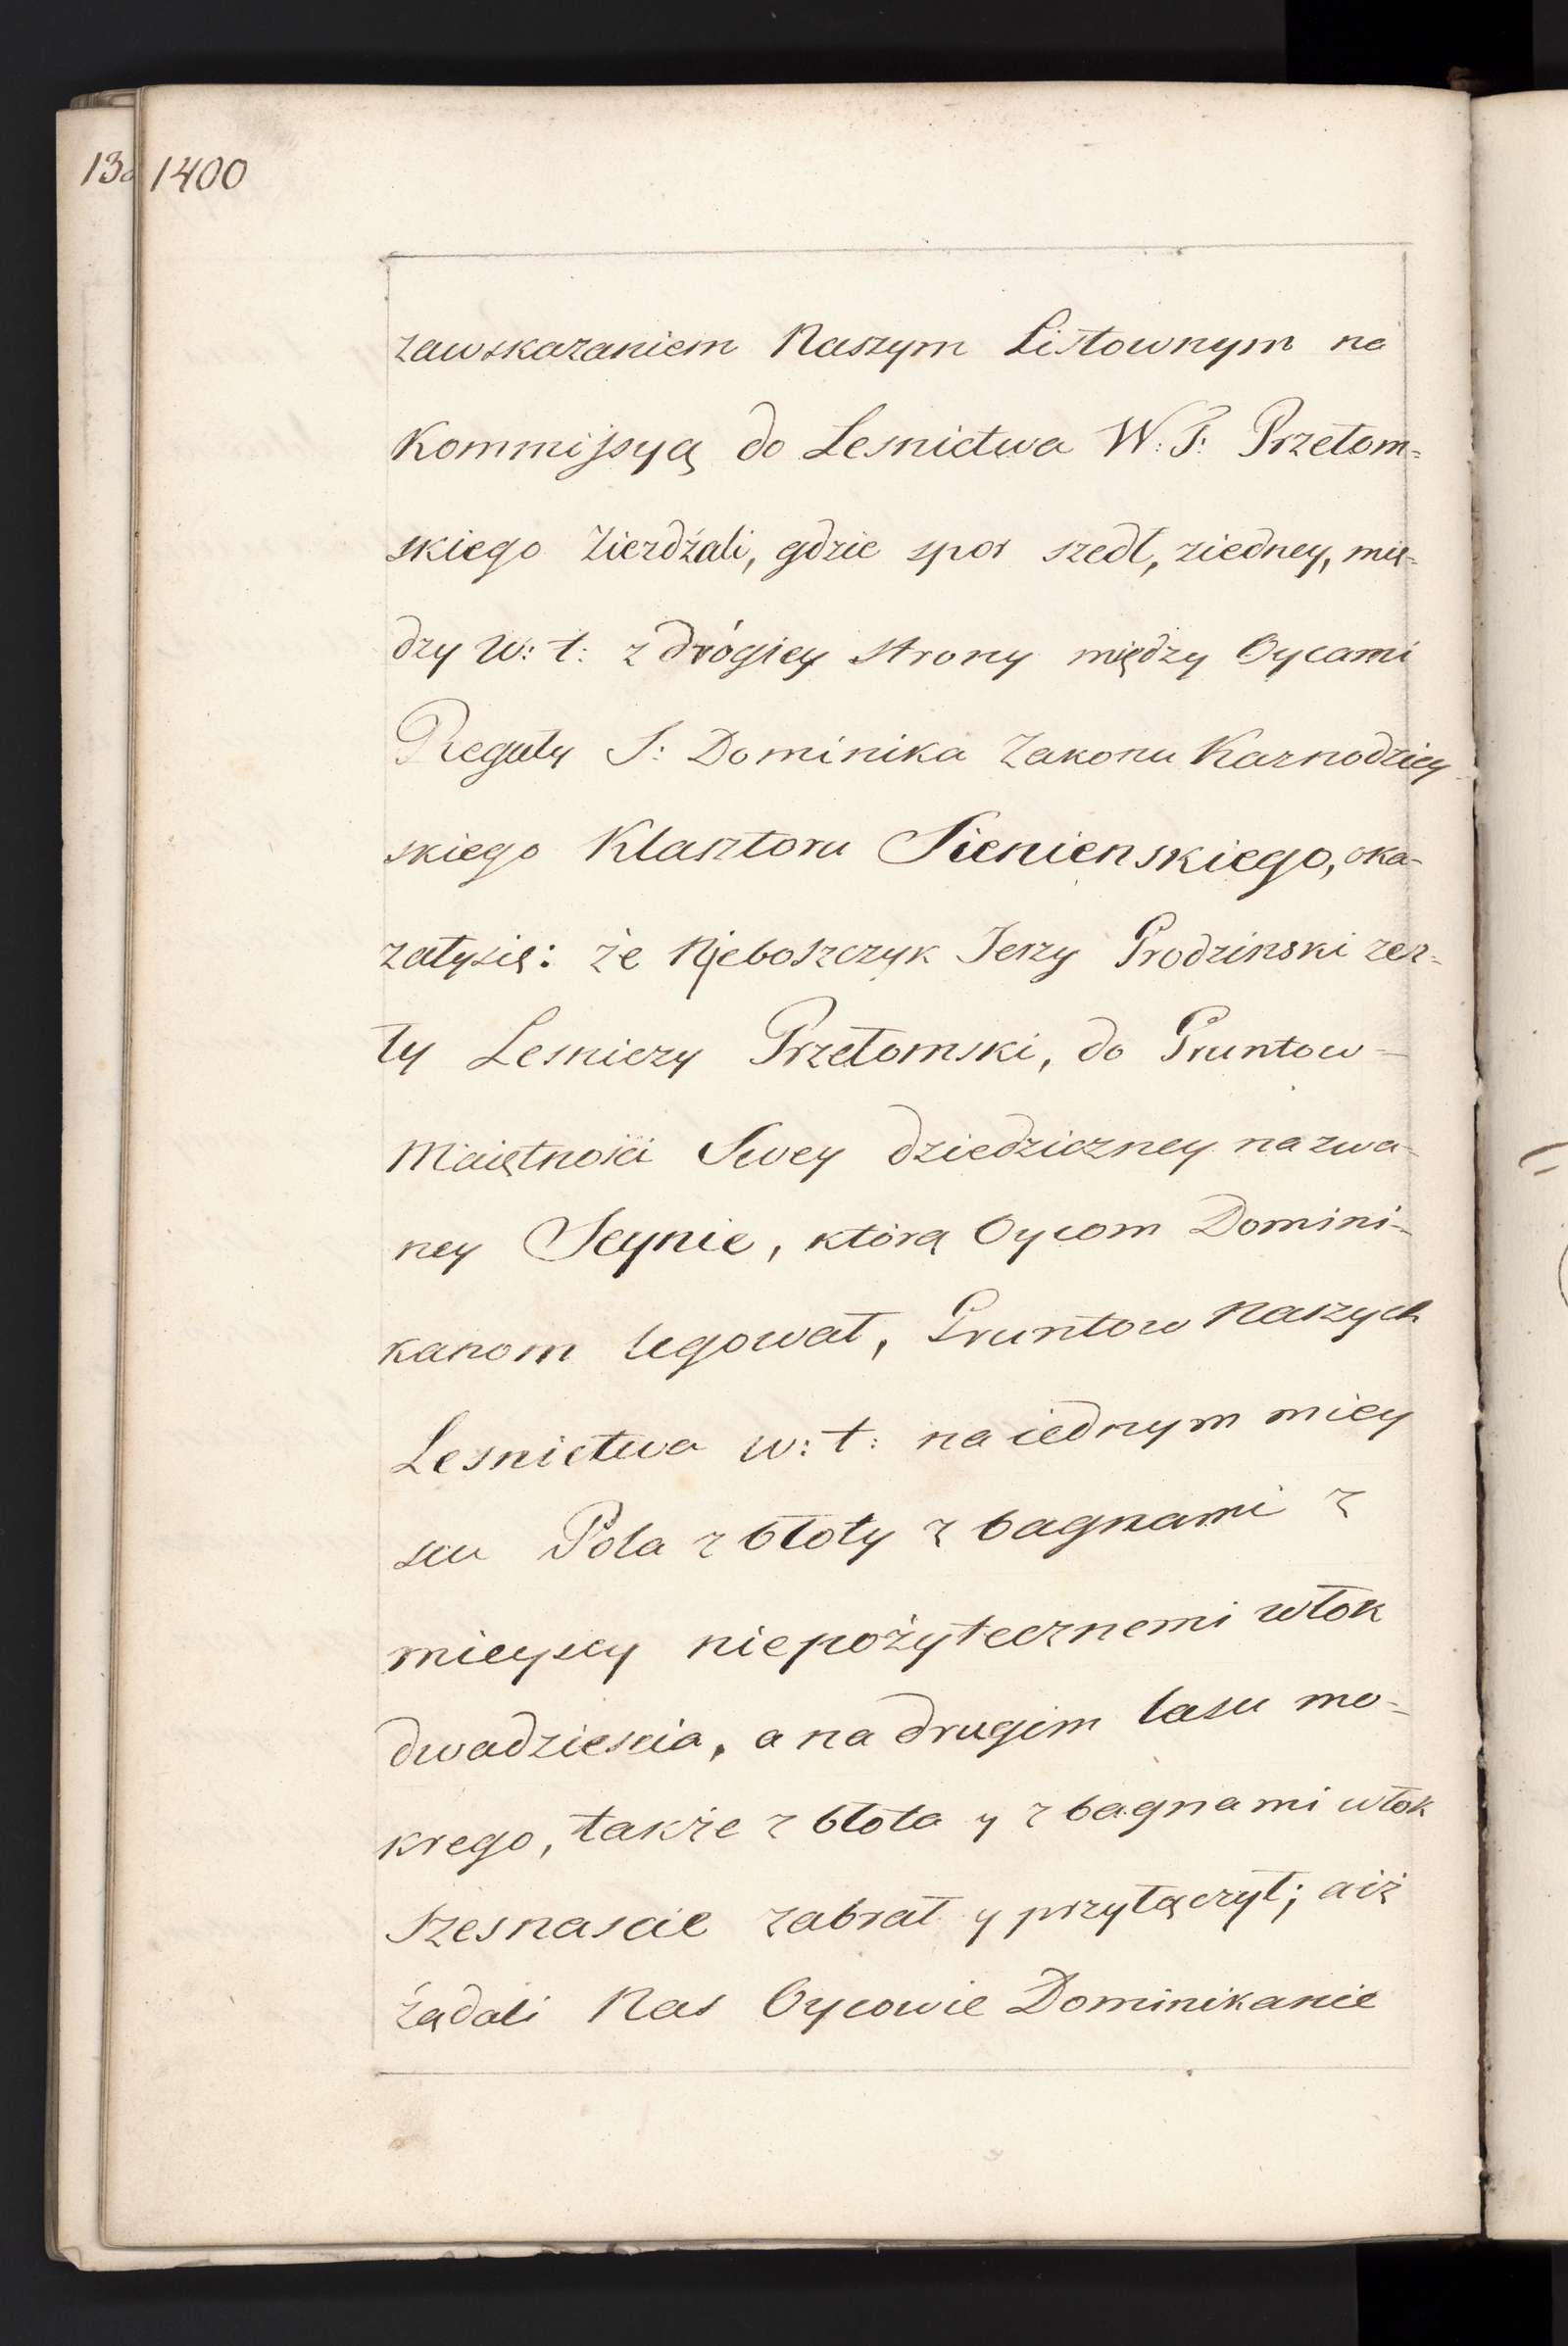 13
1400
zawskazaniem Naszym Listownym na
Kommissyą do Lesnictwa W: T: Przełom=
skiego Ziezdźali, gdzie spor szedł, ziedney, mię-
dzy W: t: z drógiey strony między Oycami
Reguły S: Dominika Zakonu Kaznodziey
skiego Klasztoru Sieninskiego, oka-
załysię: że Njeboszczyk Jerzy Grodzinski zes=
ły Lesniczy Przełomski, do Gruntow=
Maiętnosci Swey dziedziczney nazwa-
ney Seynie, którą Oycom Domini-
kanom legował, Gruntow Naszych
Lesnictwa w: t: na iednym miey
scu Pola z błoty z bagnami z
mieyscy niepożytecznemi włok
dwadziescia, a na drugim lasu mo-
krego, także z błota y z bagnami włok
szesnascie zabrał y przyłączył; aiż
żądali Nas Oycowie Dominikanie